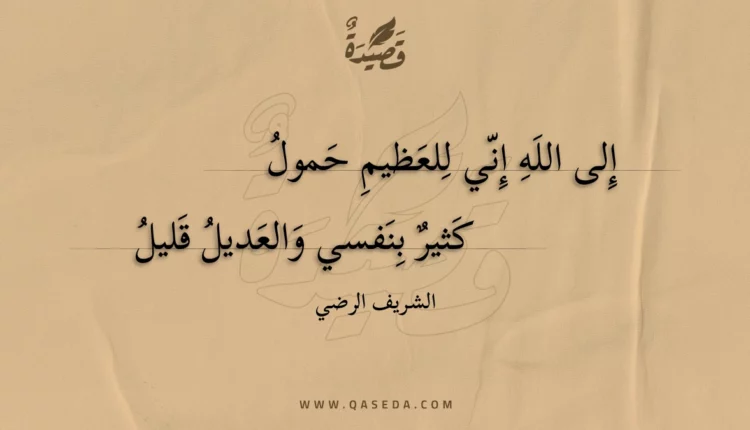 قَصِيدَةٌ
إِلى اللَهِ إِنّي لِلعَظيمِ حَمولُ
كَثيرٌ بِنَفسي وَالعَديلُ قَليلُ
الشريف الرضي
WWW.QASEDA.COM